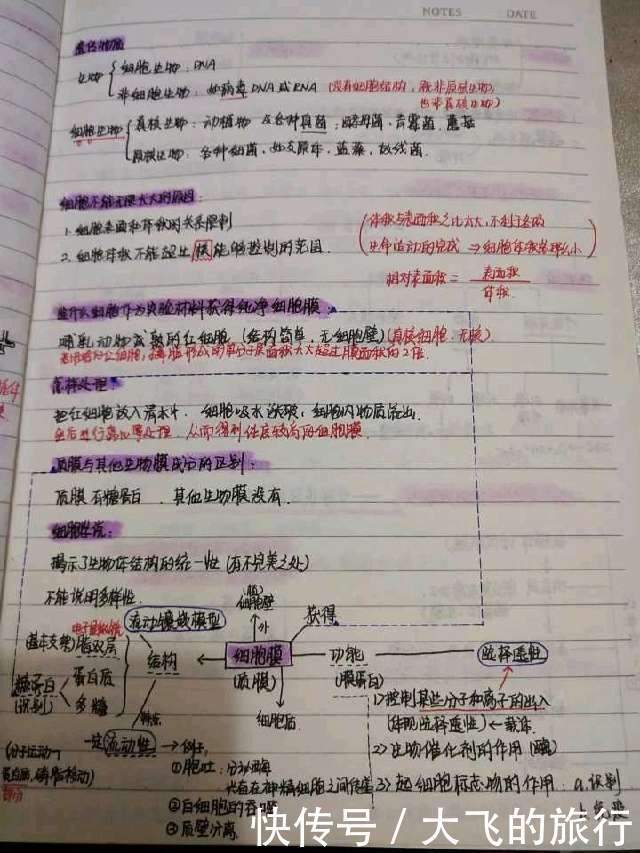 NOTES DATE
遗传物质
生物 细胞生物：DNA
非细胞生物：如病毒 DNA或RNA（没有细胞结构，既非原核生物，
也非真核生物）
细胞生物 真核生物：动植物 及各种真菌：酵母菌、青霉菌、蘑菇
原核生物：各种细菌、如支原体、蓝藻、放线菌.
细胞不能无限长大的原因：
1.细胞表面和体积的关系限制
2.细胞体积不能超出核能够控制的范围.
体积与表面积之比
生命活动的完成 ⇒ 细胞体积
相对表面积 = 表面积
体积
细胞作为实验材料获得纯净细胞膜
哺乳动物成熟的红细胞（结构简单，无细胞壁）（真核细胞·无膜）
单分子层面积大大超过膜面积的2倍.
怎样处理：
把红细胞放入清水中. 细胞吸水涨破，细胞内物质流出.
然后进行离心等处理，从而得到纯度较高的细胞膜.
质膜与其他生物膜成分的区别：
质膜有糖蛋白、其他生物膜没有.
细胞学说：
揭示了生物体结构的统一性（有不完美之处）
不能说明多样性.
细胞壁
外
获得
流动镶嵌模型
(基本支架) 脂双层
结构
细胞膜
(质膜)
功能
(膜蛋白)
选择透性
糖蛋白
(识别)
蛋白质
多糖
特点
细胞质
1>控制某些分子和离子的出入
(体现选择透性) ← 载体
2>生物催化剂的作用 (酶)
一定流动性 → 例：
(分子运动
①胞吐：分泌
在神经细胞之间传递
3>起细胞标志物的作用：a.识别
②白细胞的吞噬
③质壁分离
快传号／大飞的旅行